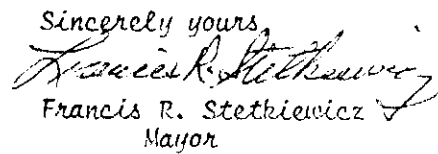 Sincerely yours,
Francis R. Stetkiewicz
Francis R. Stetkiewicz
Mayor